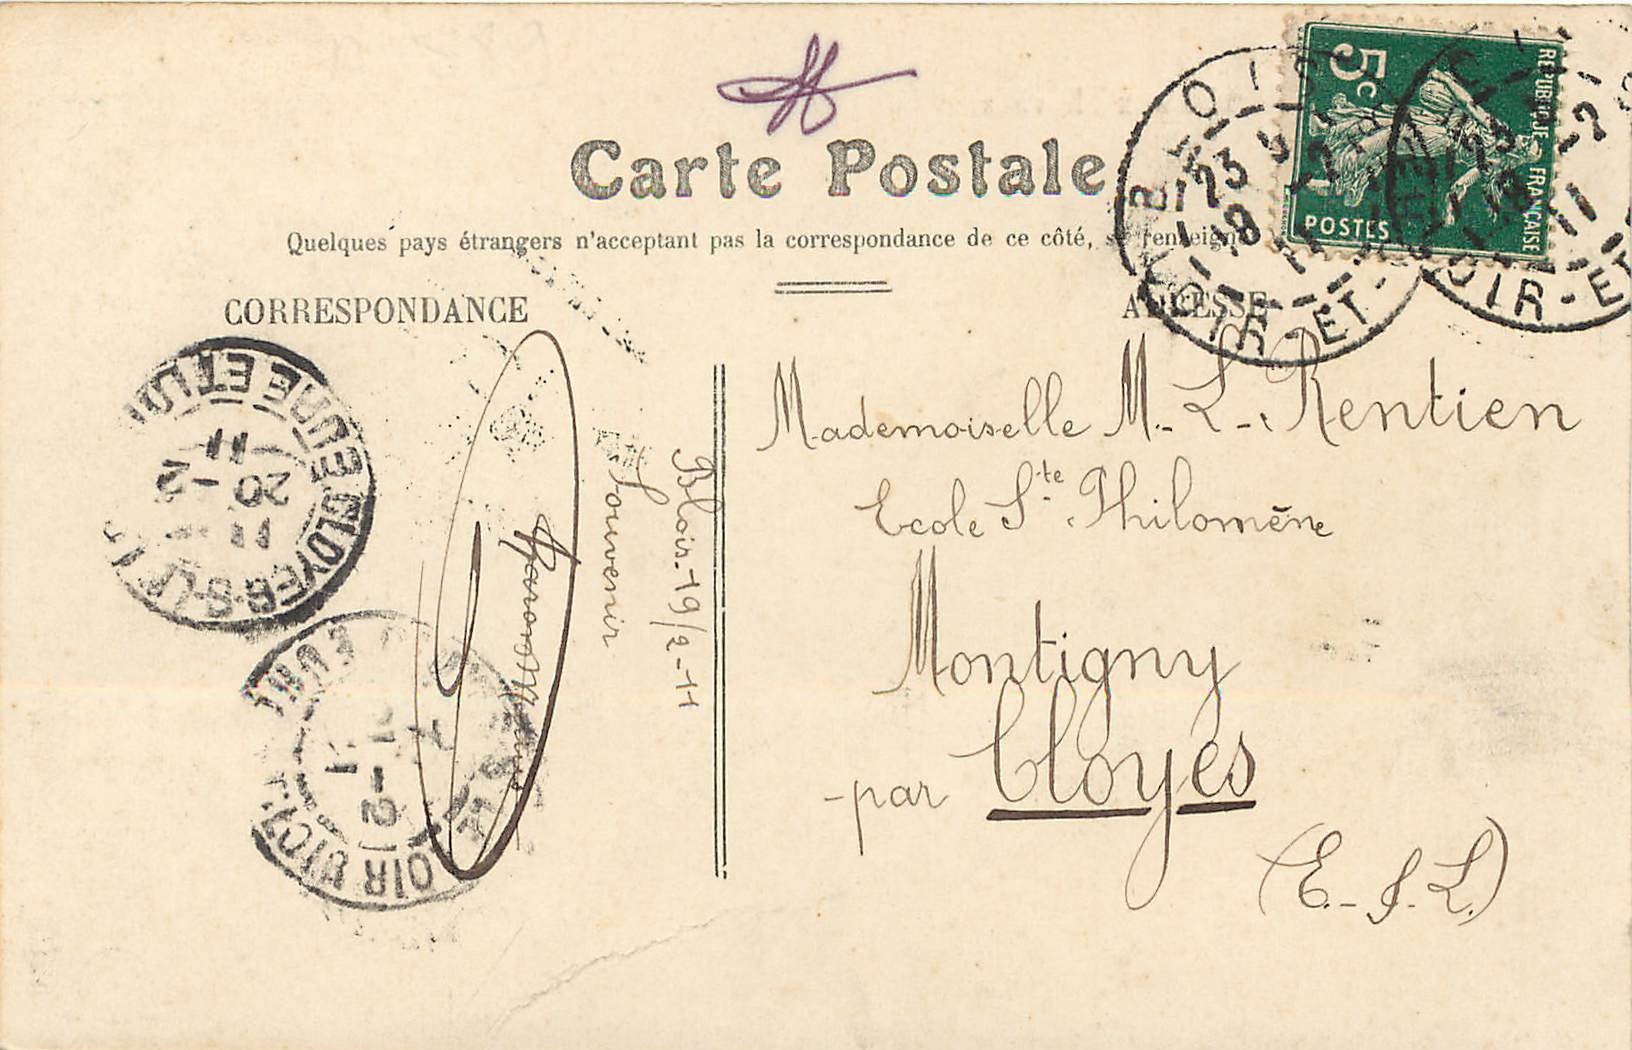 Carte Postale
Quelques pays étrangers n'acceptant pas la correspondance de ce côté, se renseigner
CORRESPONDANCE
ADRESSE
5c
REPUBLIQUE FRANÇAISE
POSTES
BLOIS
LOIR-ET-
23
18
-2
11
LOIR-ET
23
18
-2
11
EURE ET LOIR
CLOYES-S-LE-LOIR
11
20 -2
11
EURE
LOIR
-2
11
Blois-19/2-11
Souvenir
Mademoiselle M.-L. Rentien
Ecole Ste Philomène
Montigny
-par Cloyes
(E.-&-L.)